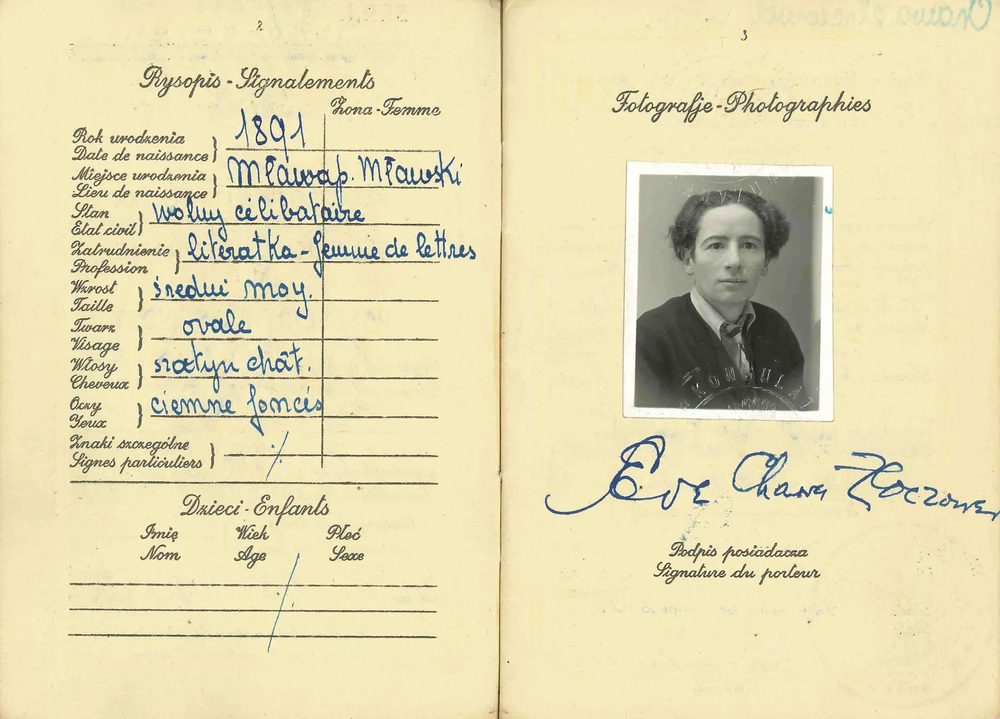 2
Rysopis - Signalements
Żona - Femme
Rok urodzenia
Date de naissance
1891
Miejsce urodzenia
Lieu de naissance
Mława p. Mławski
Stan
Etat civil
wolny célibataire
Zatrudnienie
Profession
literatka - femme de lettres
Wzrost
Taille
średni moy.
Twarz
Visage
ovale
Włosy
Cheveux
szatyn chât.
Oczy
Yeux
ciemne foncés
Znaki szczególne
Signes particuliers
Dzieci - Enfants
Imię Wiek Płeć
Nom Age Sexe
3
Fotografje - Photographies
KONSULAT
Eve Chawa Zloczower
Podpis posiadacza
Signature du porteur